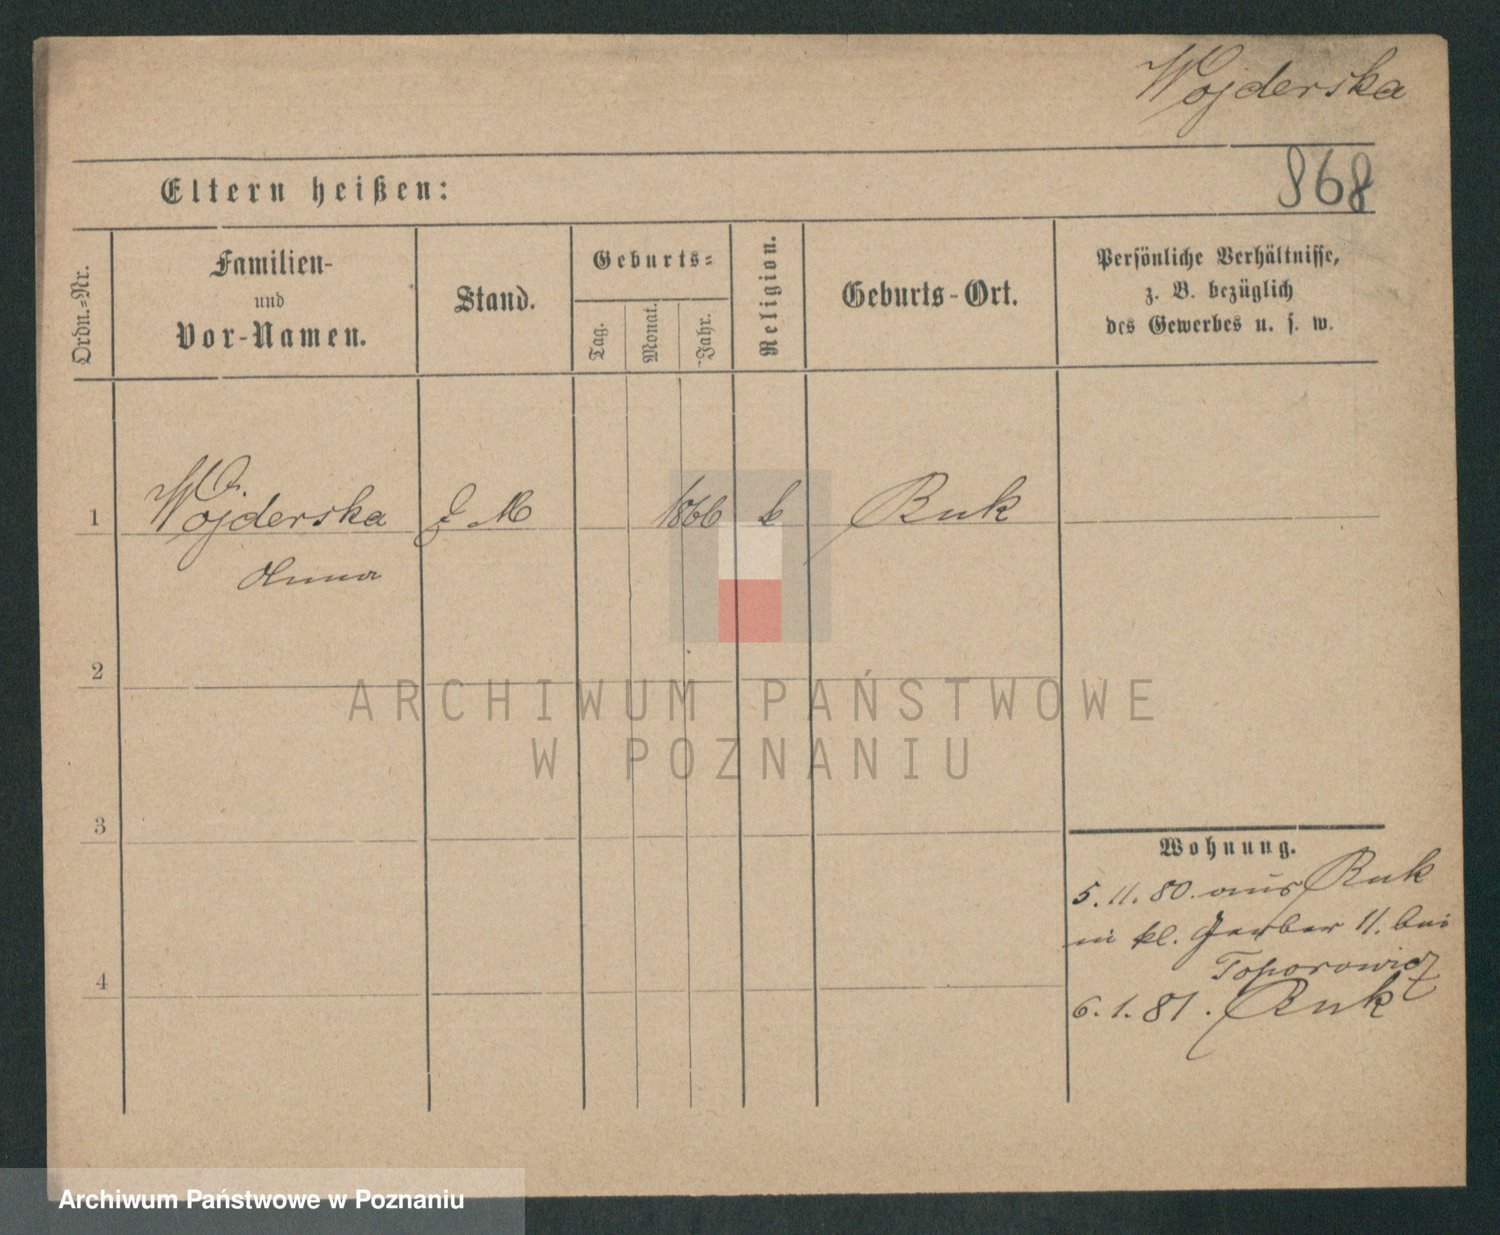 Wojderska
868
Eltern heißen:
Ordn.-Nr.
Familien-
und
Vor-Namen.
Stand.
Geburts-
Tag.
Monat.
Jahr.
Religion.
Geburts-Ort.
Persönliche Verhältnisse,
z. B. bezüglich
des Gewerbes u. s. w.
1
Wojderska
M
1866
k
Buk
Anna
2
ARCHIWUM PAŃSTWOWE
W POZNANIU
3
Wohnung.
5.11.80. aus Buk
in kl. Gerber 11. bei
Toporowicz
4
6.1.81. Buk
Archiwum Państwowe w Poznaniu